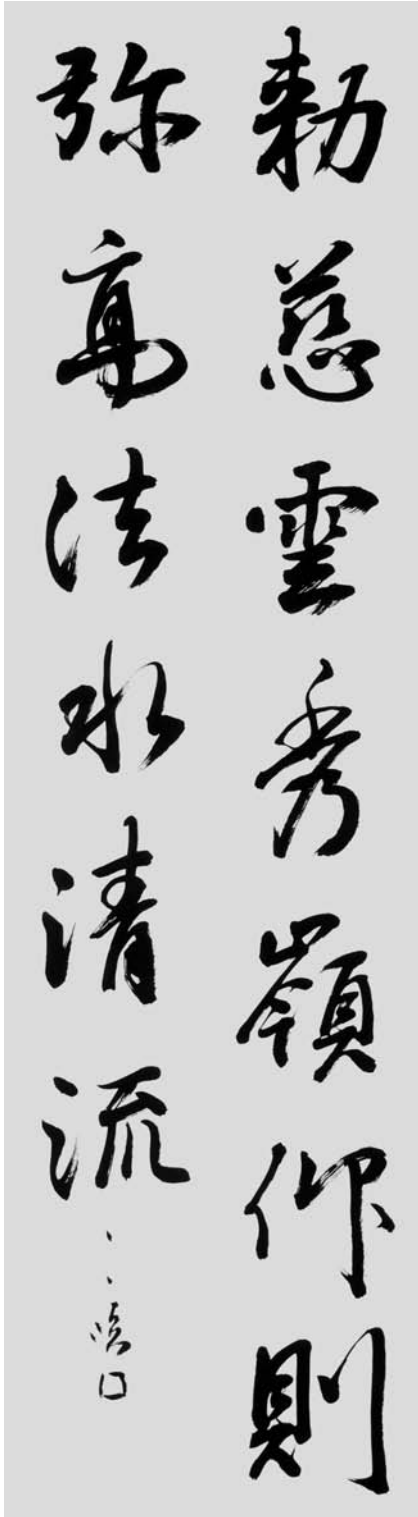 勅慈雲秀嶺仰則
弥高法水清流